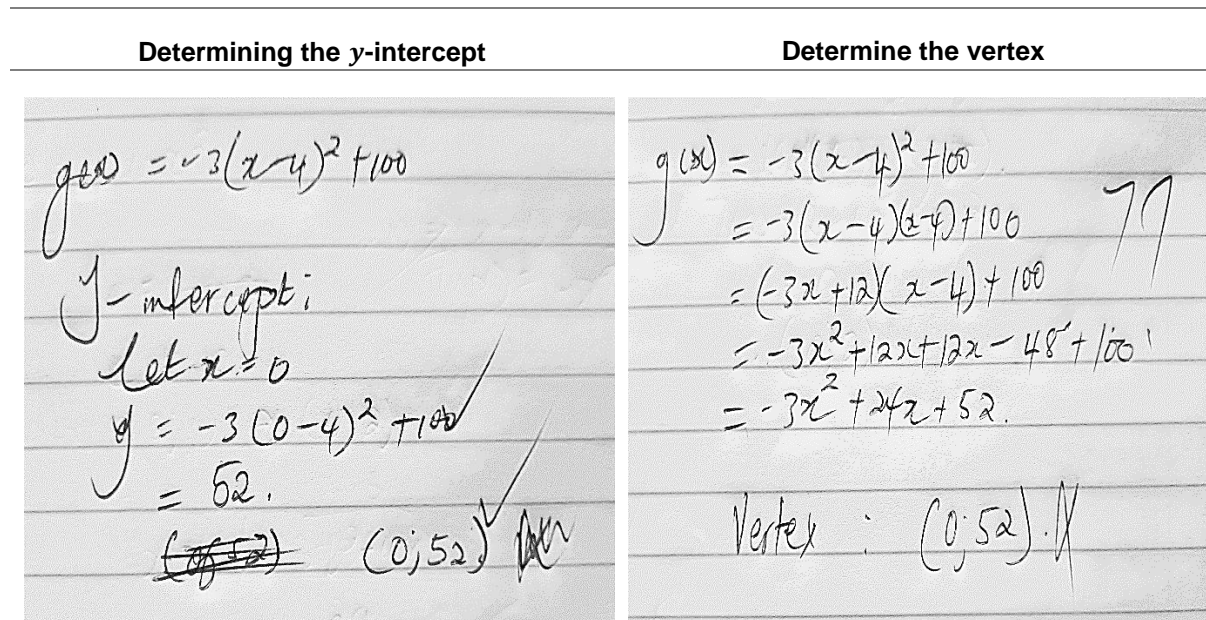 Determining the y-intercept
g(x) = -3(x-4)² +100
y-intercept:
let x = 0
y = -3(0-4)² +100
= 52.
(0;52)
Determine the vertex
g(x) = -3(x-4)² +100
= -3(x-4)(x-4)+100
= (-3x+12)(x-4)+100
= -3x²+12x+12x-48+100
= -3x²+24x+52.
Vertex : (0;52).